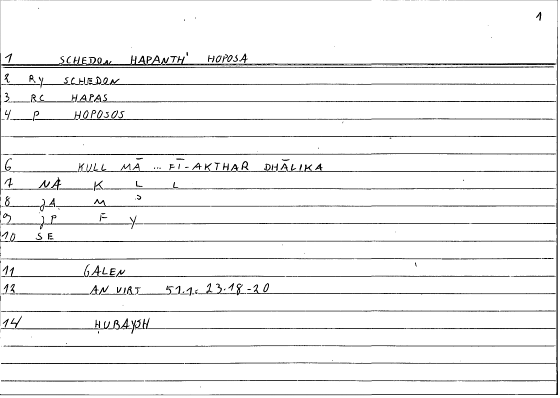 1
1 SCHEDON HAPANTH' HOPOSA
2 RY SCHEDON
3 RC HAPAS
4 P HOPOSOS
6 KULL MĀ ... FĪ-AKTHAR DHĀLIKA
7 NA K L L
8 JA M
9 JP F Y
10 SE
11 GALEN
12 AN VIRT 51.1: 23.18-20
14 ḤUBAYSH